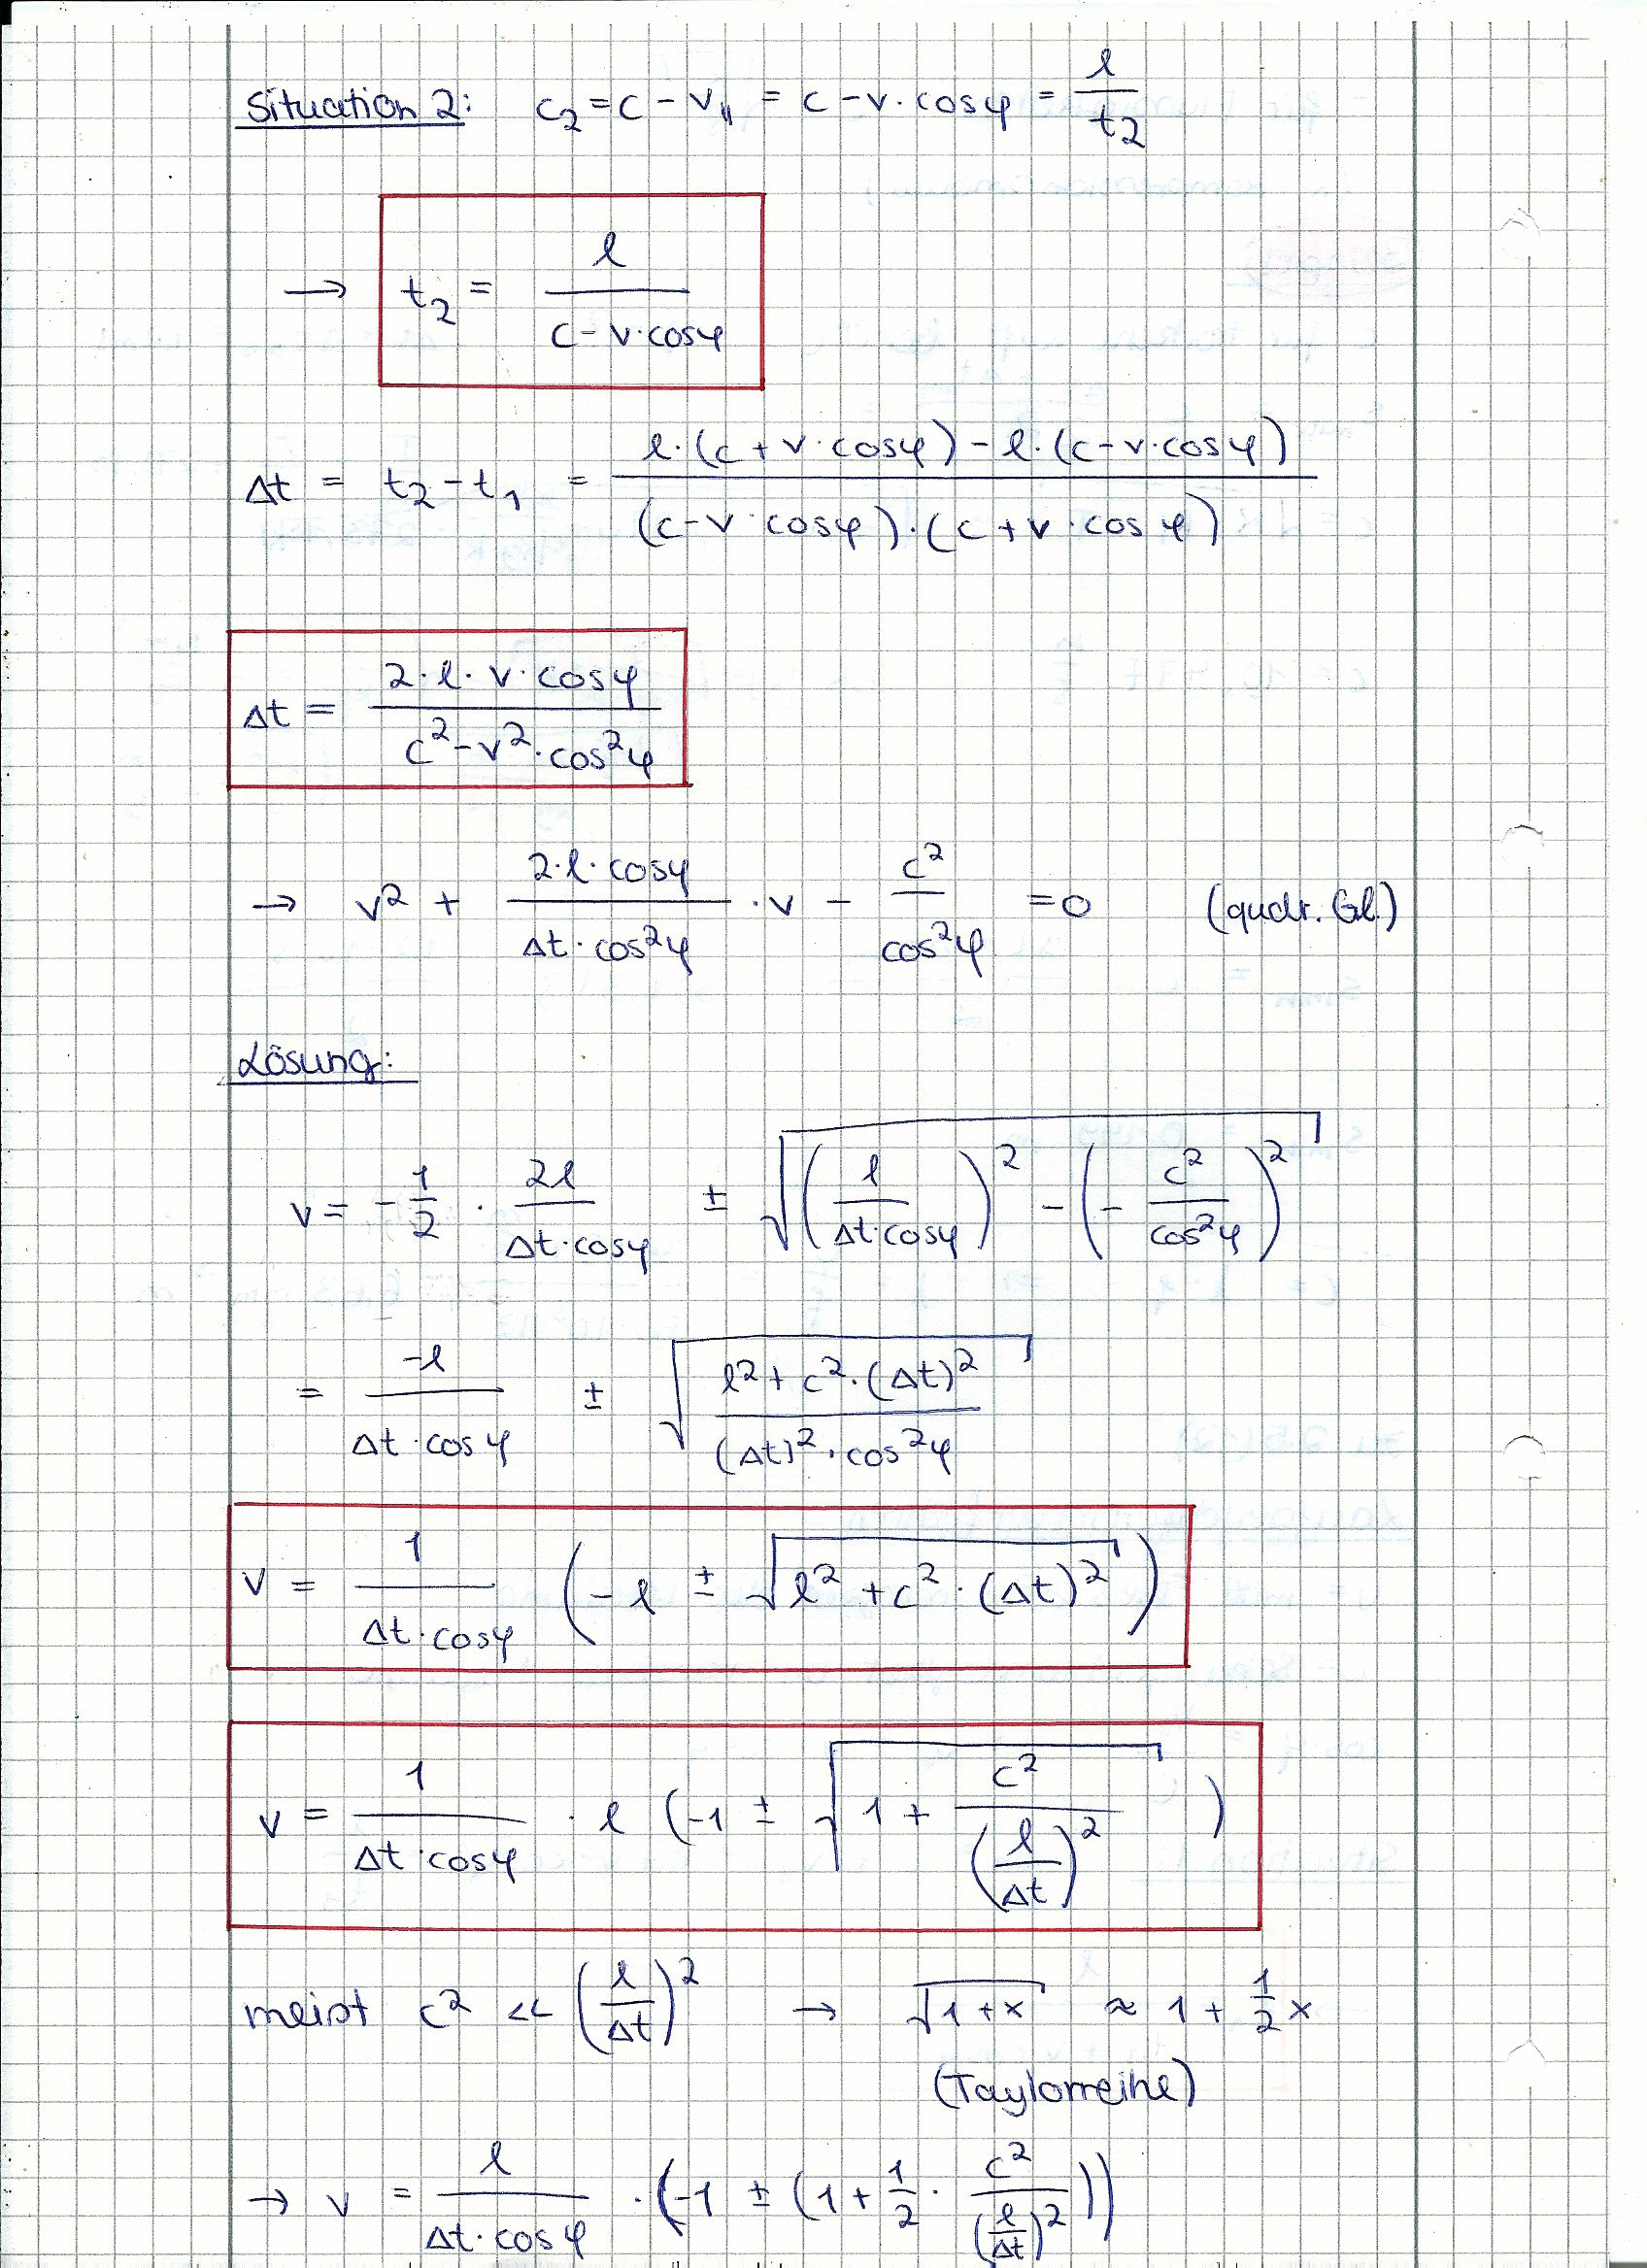 Situation 2: c₂ = c - v₁₁ = c - v · cosφ = l / t₂
→ t₂ = l / (c - v · cosφ)
Δt = t₂ - t₁ = (l · (c + v · cosφ) - l · (c - v · cosφ)) / ((c - v · cosφ) · (c + v · cosφ))
Δt = (2 · l · v · cosφ) / (c² - v² · cos²φ)
→ v² + (2 · l · cosφ) / (Δt · cos²φ) · v - c² / cos²φ = 0 (qudr. Gl.)
Lösung:
v = - 1/2 · 2l / (Δt · cosφ) ± √((l / (Δt · cosφ))² - (- c² / cos²φ)²)
= -l / (Δt · cosφ) ± √((l² + c² · (Δt)²) / ((Δt)² · cos²φ))
v = 1 / (Δt · cosφ) (-l ± √(l² + c² · (Δt)²))
v = 1 / (Δt · cosφ) · l (-1 ± √(1 + c² / (l/Δt)²))
meist c² << (l/Δt)² → √(1 + x) ≈ 1 + 1/2 x
(Taylorreihe)
→ v = l / (Δt · cosφ) · (-1 ± (1 + 1/2 · c² / (l/Δt)²))